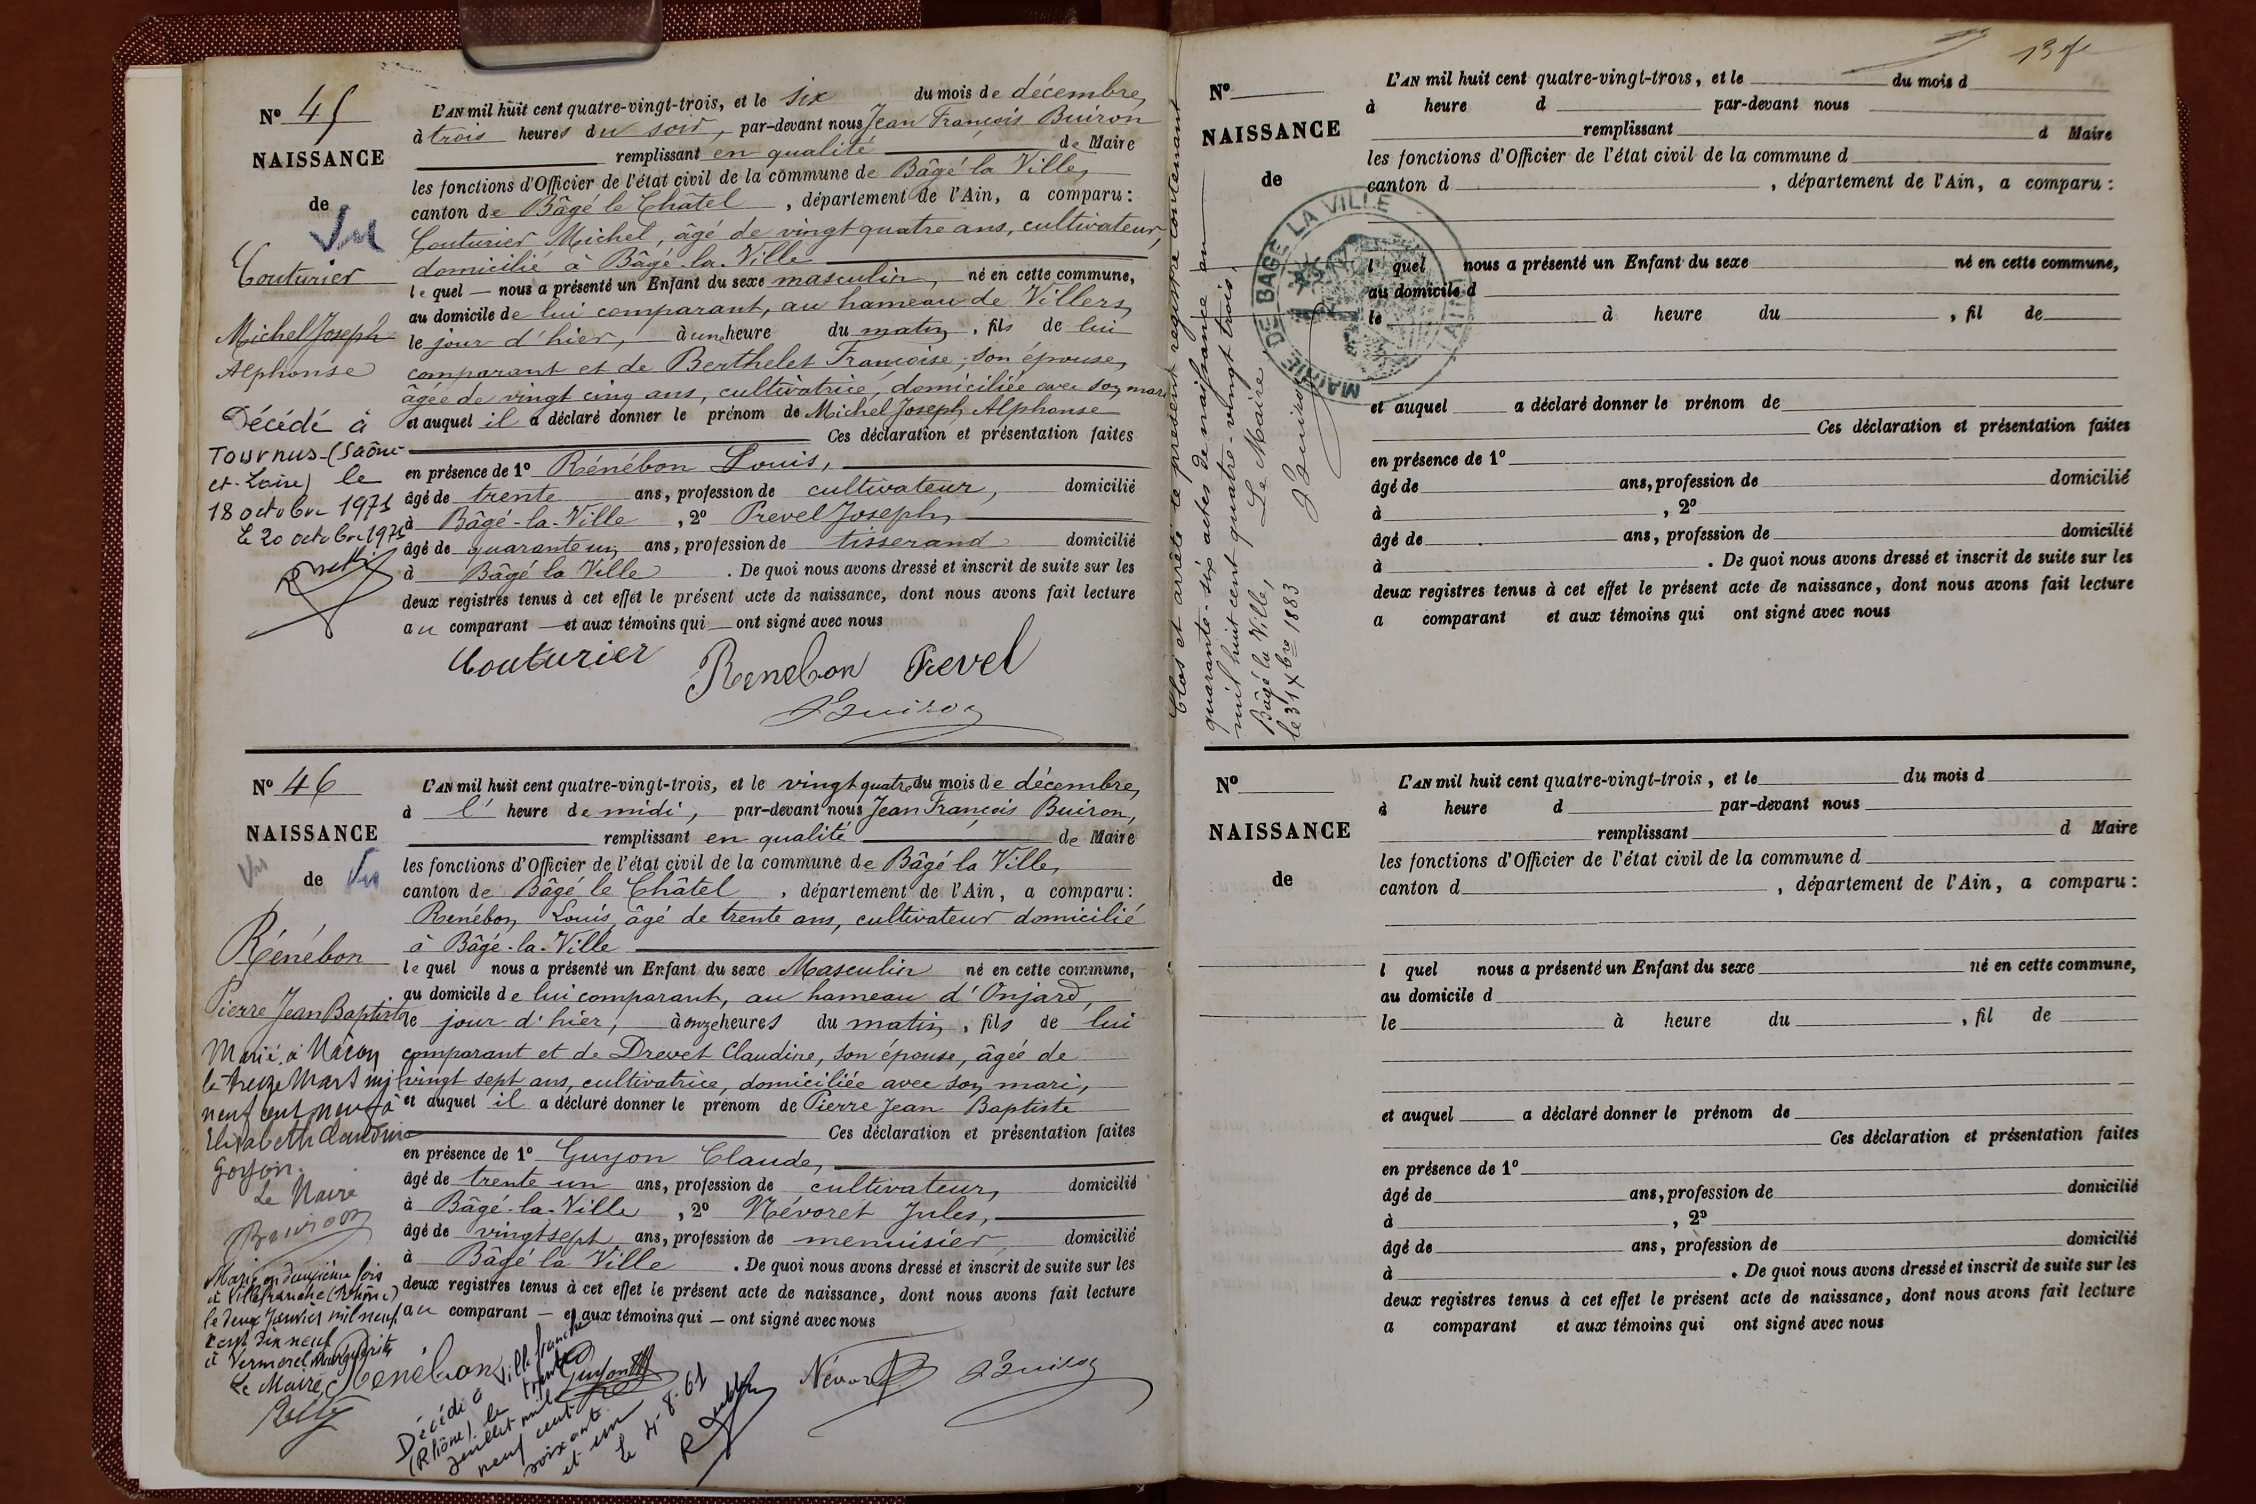 Nº 45
NAISSANCE
de
Vu
Couturier
Michel Joseph
Alphonse
Décédé à
Tournus (Saône-
et-Loire) le
18 octobre 1971
Le 20 octobre 1971
L'AN mil huit cent quatre-vingt-trois, et le six du mois de décembre,
à trois heures du soir, par-devant nous Jean François Buiron
remplissant en qualité de Maire
les fonctions d'Officier de l'état civil de la commune de Bâgé la Ville,
canton de Bâgé le Chatel, département de l'Ain, a comparu:
Couturier Michel, âgé de vingt quatre ans, cultivateur,
domicilié à Bâgé-la-Ville
lequel nous a présenté un Enfant du sexe masculin, né en cette commune,
au domicile de lui comparant, au hameau de Villers,
le jour d'hier, à une heure du matin, fils de lui
comparant et de Berthelet Françoise, son épouse,
âgée de vingt cinq ans, cultivatrice, domiciliée avec son mari
et auquel il a déclaré donner le prénom de Michel Joseph Alphonse
Ces déclaration et présentation faites
en présence de 1º Rénébon Louis,
âgé de trente ans, profession de cultivateur, domicilié
à Bâgé-la-Ville, 2º Prevel Joseph,
âgé de quarante un ans, profession de tisserand domicilié
à Bâgé la Ville. De quoi nous avons dressé et inscrit de suite sur les
deux registres tenus à cet effet le présent acte de naissance, dont nous avons fait lecture
au comparant et aux témoins qui ont signé avec nous
Couturier Renebon Prevel
JBuiron
Nº 46
NAISSANCE
Vu de Vu
Rénébon
Pierre Jean Baptiste
Marié à Mâcon
le treize Mars mil
neuf cent neuf à
Elisabeth Claudine
Goyon.
Le Maire
Buiron
Marié en deuxième fois
à Villefranche (Rhône)
le deux Janvier mil neuf
cent dix neuf
à Vermorel Marguerite
Le Maire,
L'AN mil huit cent quatre-vingt-trois, et le vingt quatre du mois de décembre,
à l' heure de midi, par-devant nous Jean François Buiron,
remplissant en qualité de Maire
les fonctions d'Officier de l'état civil de la commune de Bâgé la Ville,
canton de Bâgé le Châtel, département de l'Ain, a comparu:
Renébon Louis, âgé de trente ans, cultivateur domicilié
à Bâgé-la-Ville
lequel nous a présenté un Enfant du sexe Masculin né en cette commune,
au domicile de lui comparant, au hameau d'Onjard,
le jour d'hier, à onze heures du matin, fils de lui
comparant et de Drevet Claudine, son épouse, âgée de
vingt sept ans, cultivatrice, domiciliée avec son mari,
et auquel il a déclaré donner le prénom de Pierre Jean Baptiste
Ces déclaration et présentation faites
en présence de 1º Guyon Claude,
âgé de trente un ans, profession de cultivateur, domicilié
à Bâgé-la-Ville, 2º Névoret Jules,
âgé de vingt sept ans, profession de menuisier domicilié
à Bâgé la Ville. De quoi nous avons dressé et inscrit de suite sur les
deux registres tenus à cet effet le présent acte de naissance, dont nous avons fait lecture
au comparant et aux témoins qui ont signé avec nous
Renébon Guyon Névoret JBuiron
Décédé à Villefranche
(Rhône) le trente
Juillet mil
neuf cent
soixante
et un
le 4-8-61
Clos et arrêté le présent registre contenant
quarante-six actes de naissance an
mil huit cent quatre-vingt trois.
Bâgé la Ville, Le Maire
le 31 Xbre 1883 JBuiron
MAIRIE DE BAGÉ LA VILLE
AIN
Nº
NAISSANCE
de
L'AN mil huit cent quatre-vingt-trois, et le du mois d
à heure d par-devant nous
remplissant d Maire
les fonctions d'Officier de l'état civil de la commune d
canton d , département de l'Ain, a comparu:
l quel nous a présenté un Enfant du sexe né en cette commune,
au domicile d
le à heure du , fil de
et auquel a déclaré donner le prénom de
Ces déclaration et présentation faites
en présence de 1º
âgé de ans, profession de domicilié
à , 2º
âgé de ans, profession de domicilié
à . De quoi nous avons dressé et inscrit de suite sur les
deux registres tenus à cet effet le présent acte de naissance, dont nous avons fait lecture
a comparant et aux témoins qui ont signé avec nous
Nº
NAISSANCE
de
L'AN mil huit cent quatre-vingt-trois, et le du mois d
à heure d par-devant nous
remplissant d Maire
les fonctions d'Officier de l'état civil de la commune d
canton d , département de l'Ain, a comparu:
l quel nous a présenté un Enfant du sexe né en cette commune,
au domicile d
le à heure du , fil de
et auquel a déclaré donner le prénom de
Ces déclaration et présentation faites
en présence de 1º
âgé de ans, profession de domicilié
à , 2º
âgé de ans, profession de domicilié
à . De quoi nous avons dressé et inscrit de suite sur les
deux registres tenus à cet effet le présent acte de naissance, dont nous avons fait lecture
a comparant et aux témoins qui ont signé avec nous